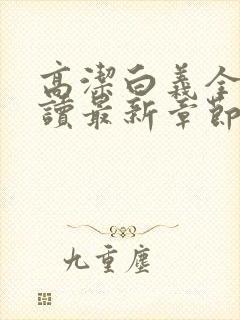 高潔白義全
讀最新章節
九重塵